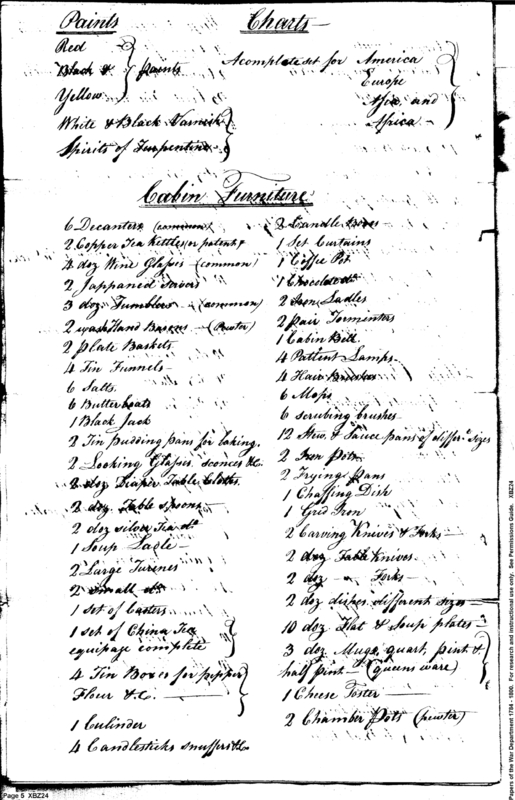 Paints
Red
Black &
Yellow
paints
White & Black Varnish
Spirits of Turpentine
Charts
A complete set for America
Europe
Asia and
Africa
Cabin Furniture
6 Decanters (common)
2 Copper Tea Kettles or potent
4 doz Wine Glasses (common)
2 Jappaned
3 doz Tumblers (common)
2 washHand Basons (Pewter)
2 Plate Baskets
4 Tin Funnels
6 Salts
6 Butter boats
1 Black Jack
2 Tin pudding pans for baking.
2 Looking Glasses, sconces &c.
2 doz Diaper Table Cloths
2 doz Table spoons
2 doz silver Tea do
1 Soup Ladle
2 Large Turines
2 Small do
1 set of Casters
1 set of China Tea
equipage complete
4 Tin Boxes for pepper
Flour &c
1 Culinder
4 Candlesticks snuffers &c
2 Candle Boxes
1 Set Curtains
1 Coffee Pot
1 Chocolate do
2 Iron Ladles
2 pair Tormenters
1 Cabin Bell
4 Pattent Lamps
4 Hair Brushes
6 Mops
6 scrubing brushes
12 Stew & Sauce pans of differt. sizes
2 Iron Pots
2 Frying Pans
1 Chaffing Dish
1 Grid Iron
2 Carving Knives & Forks
2 doz Table Knives
2 doz " Forks
2 doz dishes different sizes
10 doz Flat & Soup plates
3 doz Mugs, quart, pint &
half pint (queens ware)
1 Cheese Toster
2 Chamber Pots (pewter)
Page 5 XBZ24
Papers of the War Department 1784 - 1800. For research and instructional use only. See Permissions Guide. XBZ24